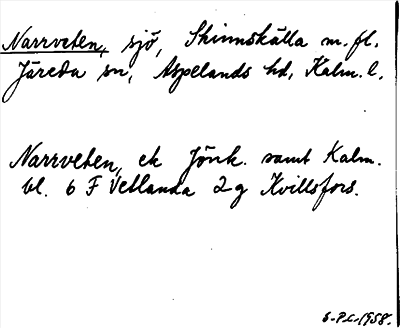 Narrveten, sjö, Skinnskälla m. fl.
Järeda sn, Aspelands hd, Kalm. l.
Narrveten, ek Jönk. samt Kalm.
bl. 6 F Vetlanda 2 g Kvillsfors.
S.P.C. 1958.